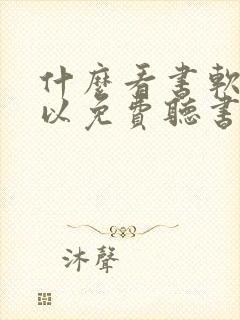 什麼看書軟
以免費聽書
沐聲